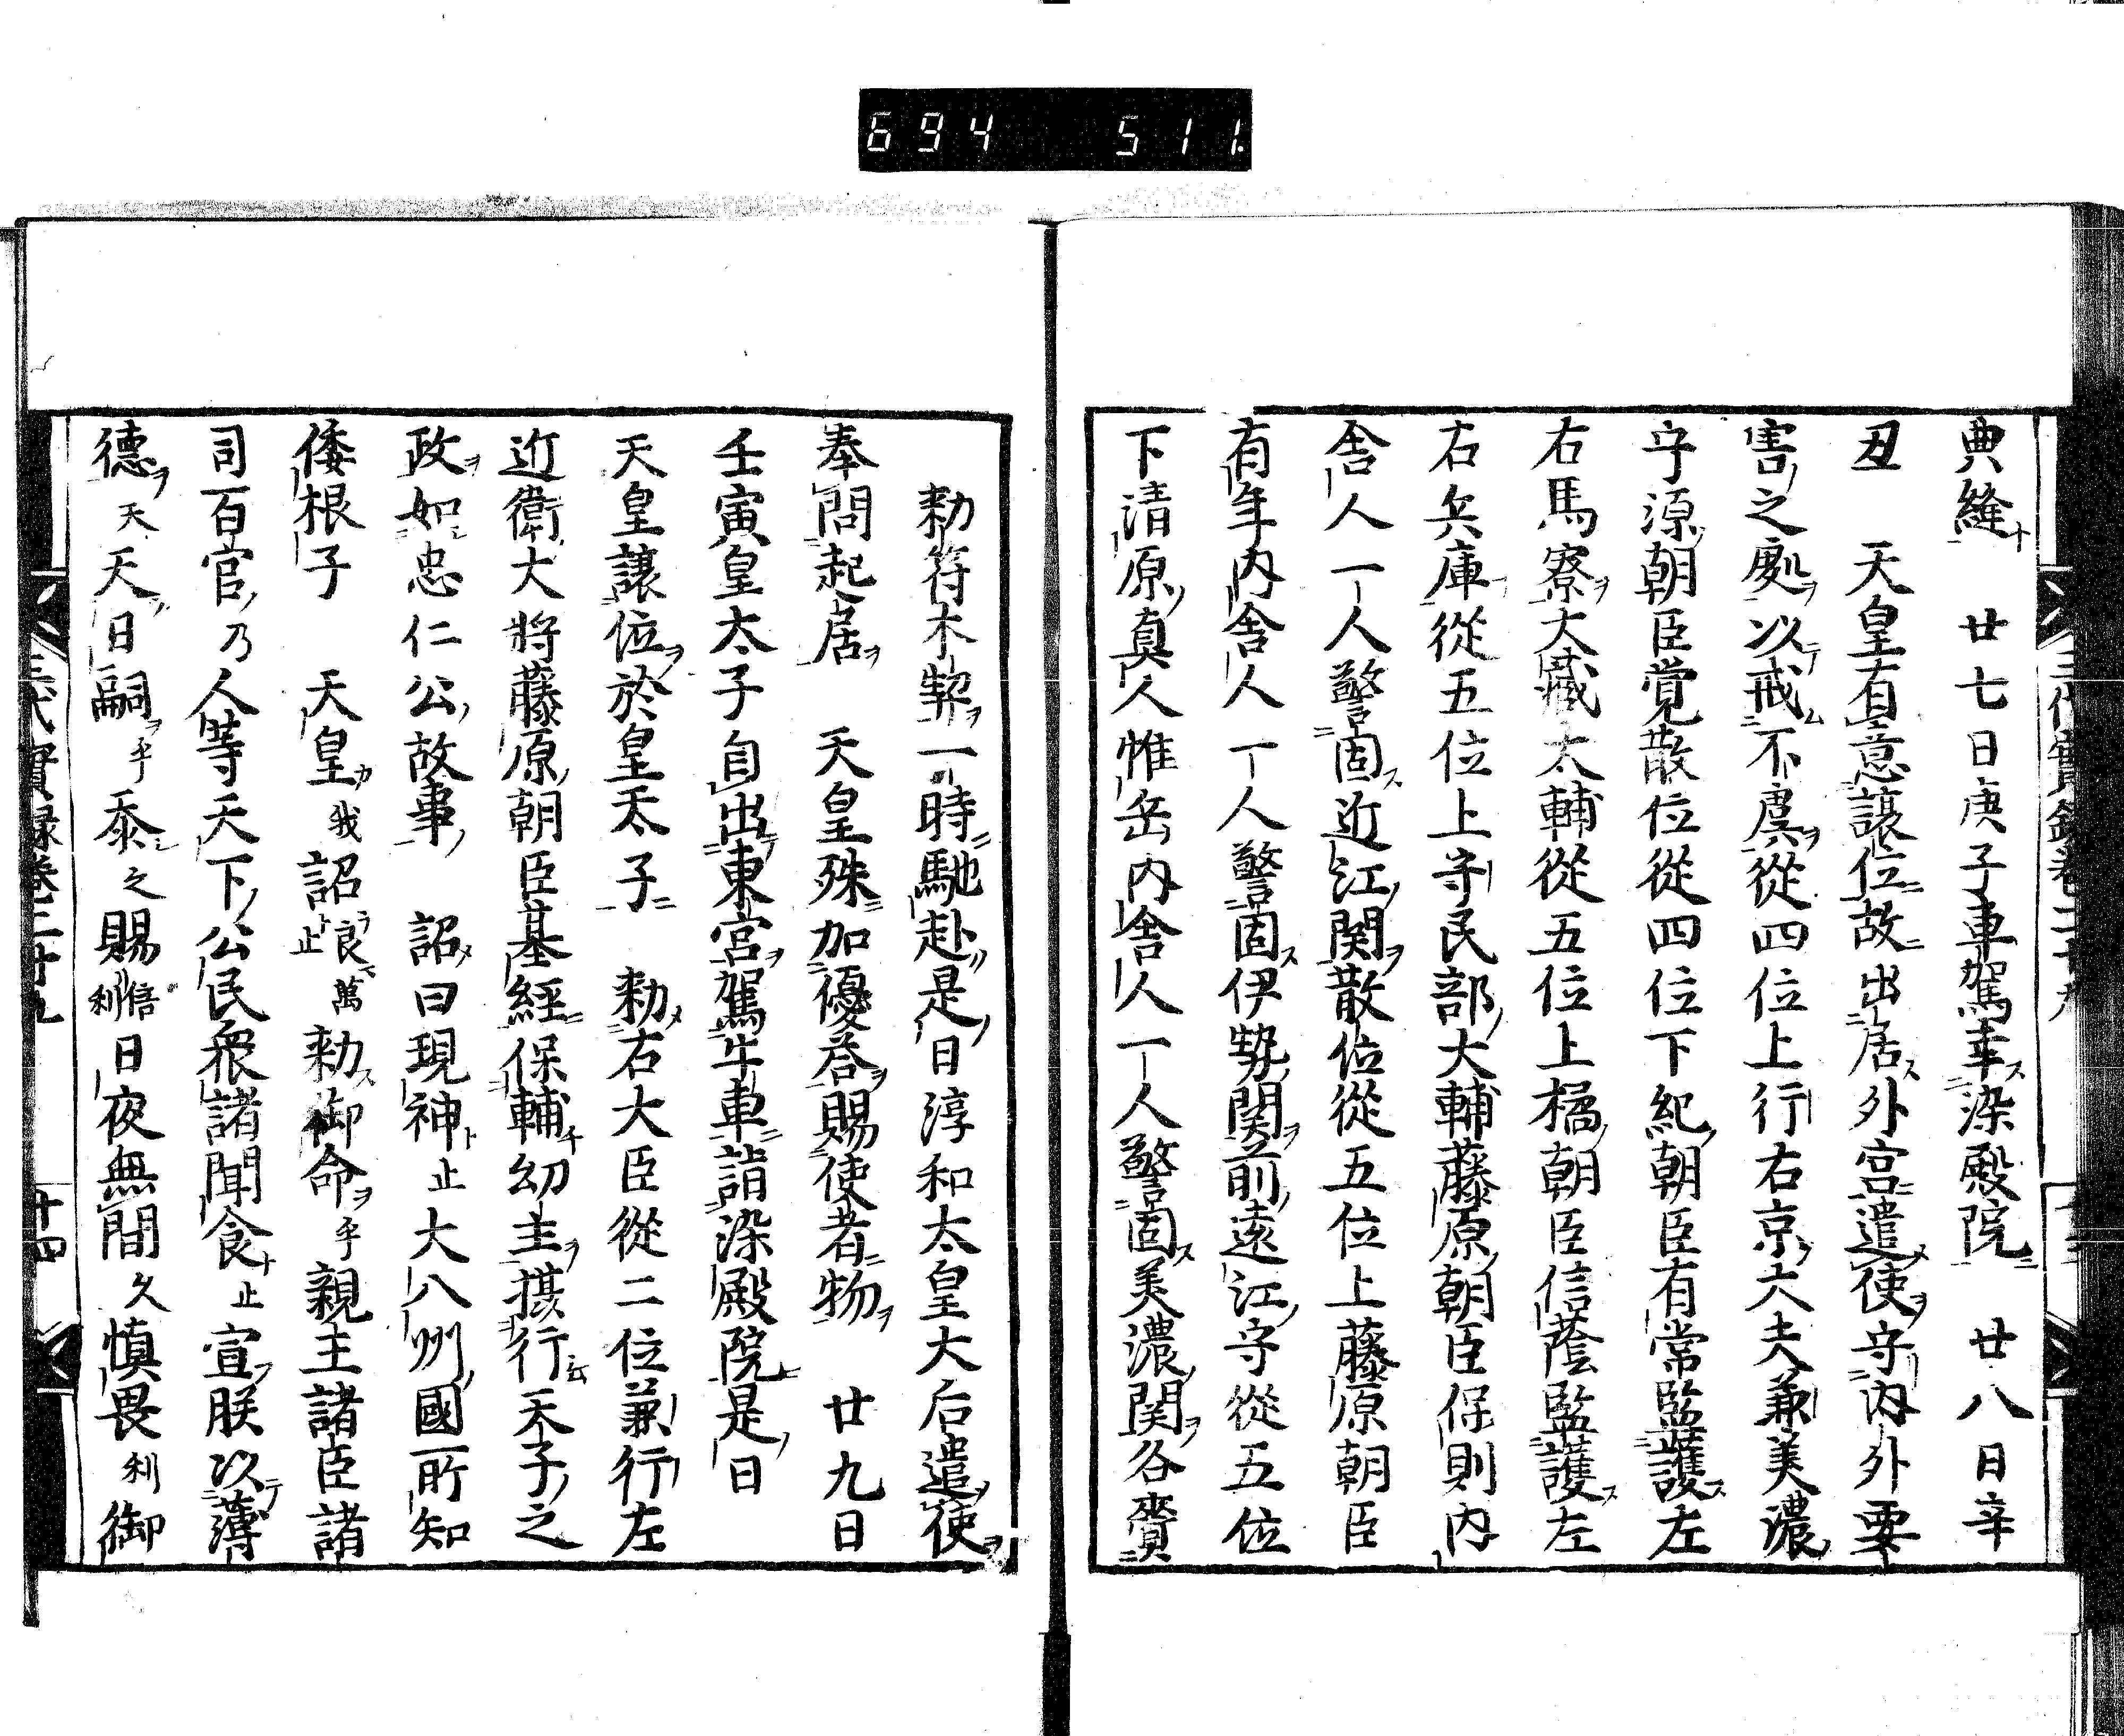 694 511.
典縫 廿七日庚子車駕幸染殿院 廿八日辛
丑 天皇有意讓位故出居外宮遣使守内外要
害之處以戒不虞從四位上行右京大夫兼美濃
守源朝臣覚散位從四位下紀朝臣有常監護左
右馬寮大藏太輔從五位上橘朝臣信蔭監護左
右兵庫從五位上守民部大輔藤原朝臣保則内
舎人一人警固近江関散位從五位上藤原朝臣
有年内舎人一人警固伊勢関前遠江守從五位
下清原真人惟岳内舎人一人警固美濃関各賷
勅符木契一時馳赴是日淳和太皇大后遣使
奉問起居 天皇殊加優荅賜使者物 廿九日
壬寅皇太子自出東宮駕牛車詣染殿院是日
天皇讓位於皇太子 勅右大臣從二位兼行左
近衛大将藤原朝臣基經保輔幼主攝行天子之
政如忠仁公故事 詔曰現神止大八州國所知
倭根子 天皇我詔良萬止勅御命乎親主諸臣諸
司百官乃人等天下公民衆諸聞食止宣朕以薄
德天天日嗣乎忝之賜倍利日夜無間久慎畏利御
三代實録卷二十九
三代實録卷二十九 十四